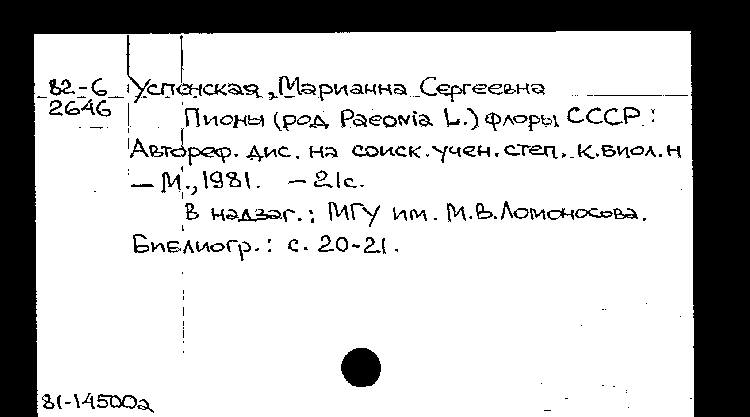 82-6 Успенская, Марианна Сергеевна
2646
Пионы (род Paeonia L.) флоры СССР:
Автореф. дис. на соиск. учен. степ. к.биол.н
– М., 1981. – 21с.
В надзаг.: МГУ им. М.В.Ломоносова.
Библиогр.: с. 20-21.
81-14500а